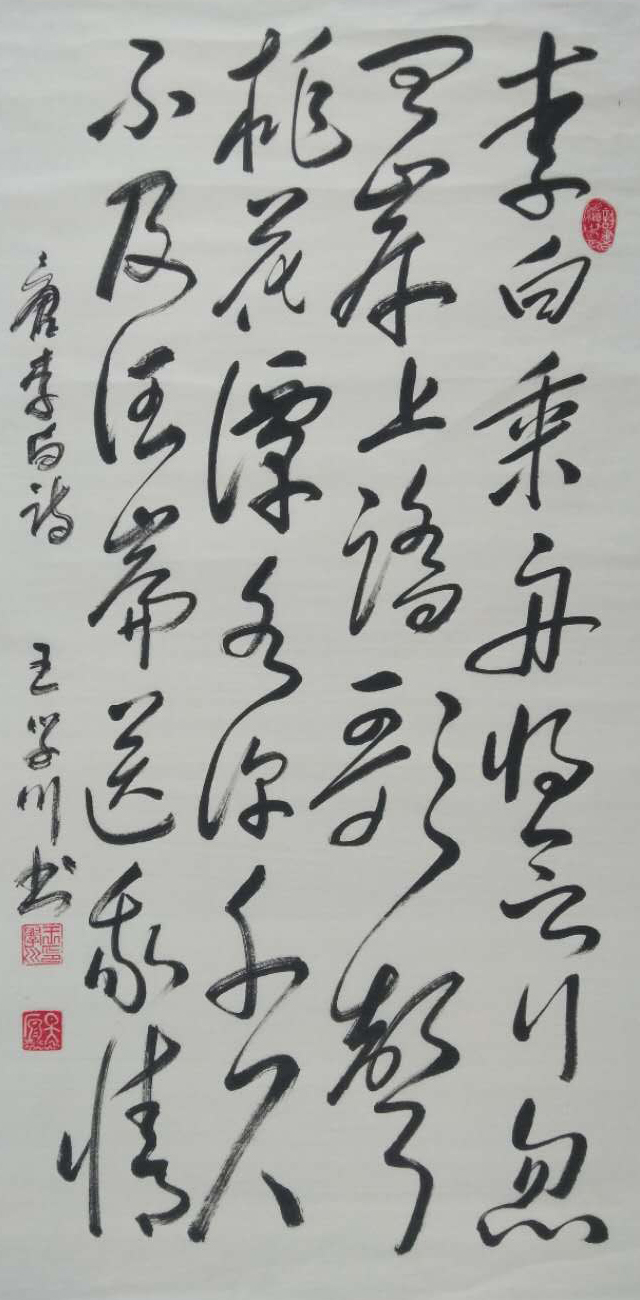 李白乘舟将欲行忽
闻岸上踏歌聲
桃花潭水深千尺
不及汪崙送我情
唐李白诗
王学川书